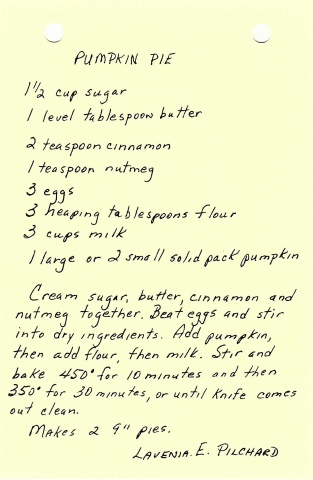 PUMPKIN PIE
1 1/2 cup sugar
1 level tablespoon butter
2 teaspoon cinnamon
1 teaspoon nutmeg
3 eggs
3 heaping tablespoons flour
3 cups milk
1 large or 2 small solid pack pumpkin
Cream sugar, butter, cinnamon and
nutmeg together. Beat eggs and stir
into dry ingredients. Add pumpkin,
then add flour, then milk. Stir and
bake 450° for 10 minutes and then
350° for 30 minutes, or until knife comes
out clean.
Makes 2 9" pies.
LAVENIA. E. PILCHARD